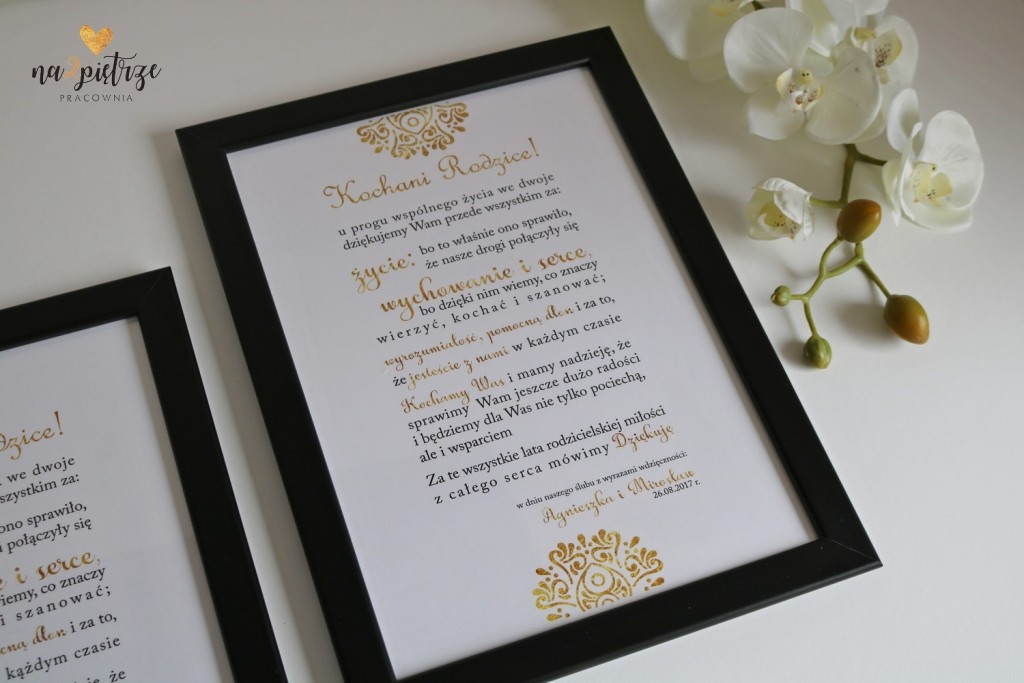 na2piętrze
PRACOWNIA
Kochani Rodzice!
u progu wspólnego życia we dwoje
dziękujemy Wam przede wszystkim za:
życie: bo to właśnie ono sprawiło,
że nasze drogi połączyły się
wychowanie i serce,
bo dzięki nim wiemy, co znaczy
wierzyć, kochać i szanować;
wyrozumiałość, pomocną dłoń i za to,
że jesteście z nami w każdym czasie
Kochamy Was i mamy nadzieję, że
sprawimy Wam jeszcze dużo radości
i będziemy dla Was nie tylko pociechą,
ale i wsparciem
Za te wszystkie lata rodzicielskiej miłości
z całego serca mówimy Dziękuję
w dniu naszego ślubu z wyrazami wdzięczności:
Agnieszka i Mirosław
26.08.2017 r.
dzice!
we dwoje
szystkim za:
ono sprawiło,
połączyły się
e i serce,
wiemy, co znaczy
i szanować;
cną dłoń i za to,
w każdym czasie
dzieję, że